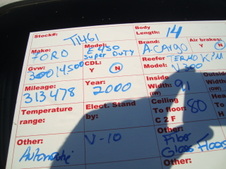 Stock#: T1461 Body Length: 14
Make: FORD Model: E450 SUPER DUTY Brand: A.CARGO Air brakes: Y N
Gvw: 14500 CDL: Y N Reefer Model: THERMO KING
Mileage: 313478 Year: 2000 Inside Width: 91
Temperature range: Elect. Stand by: Ceiling To floor: 80 C 2 F
Other: Automatic V-10 Other: Fiber Glass Floor